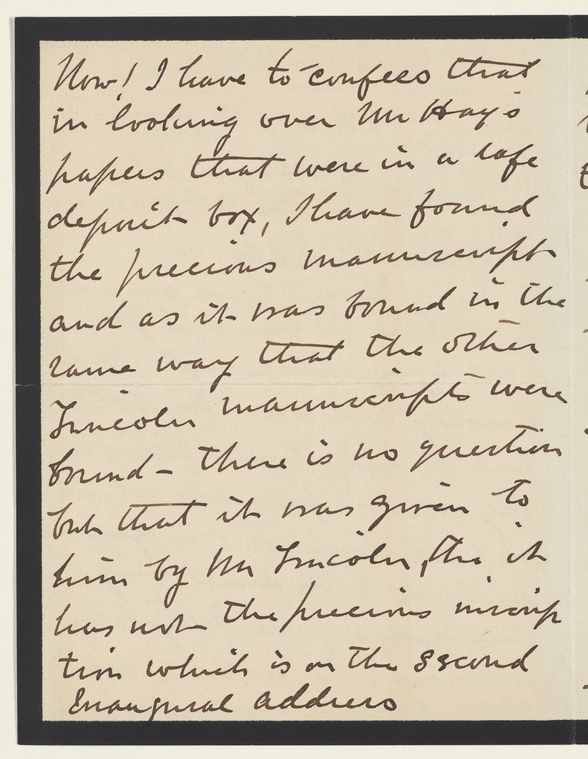 Now! I have to confess that
in looking over Mr Hay's
papers that were in a safe
deposit box, I have found
the precious manuscript
and as it was bound in the
same way that the other
Lincoln manuscripts were
bound - there is no question
but that it was given to
him by Mr Lincoln, tho it
has not the precious inscrip
tion which is on the second
Inaugural address